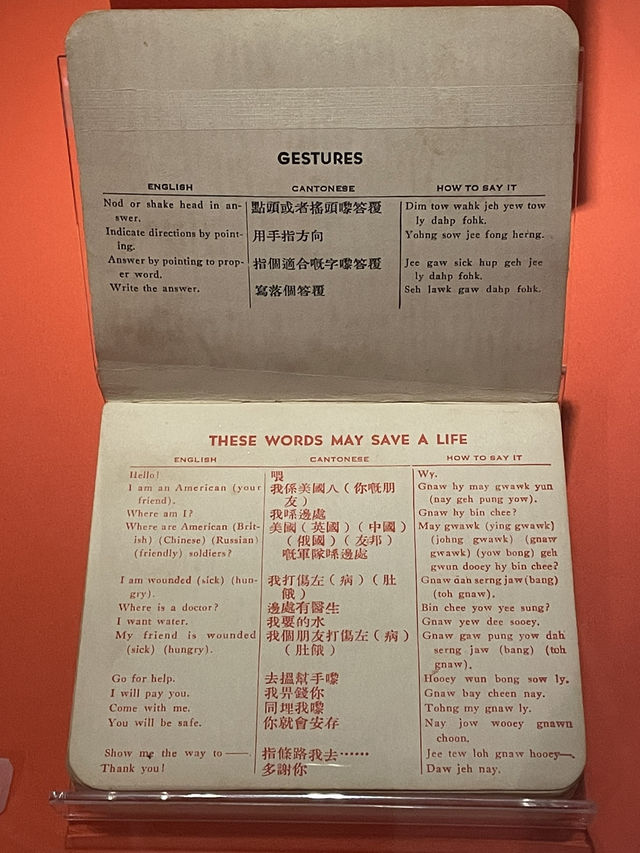 GESTURES
ENGLISH CANTONESE HOW TO SAY IT
Nod or shake head in an- 點頭或者搖頭嚟答覆 Dim tow wahk jeh yew tow
swer. ly dahp fohk.
Indicate directions by point- 用手指方向 Yohng sow jee fong herng.
ing.
Answer by pointing to prop- 指個適合嘅字嚟答覆 Jee gaw sick hup geh jee
er word. ly dahp fohk.
Write the answer. 寫落個答覆 Seh lawk gaw dahp fohk.
THESE WORDS MAY SAVE A LIFE
ENGLISH CANTONESE HOW TO SAY IT
Hello! 喂 Wy.
I am an American (your 我係美國人(你嘅朋 Gnaw hy may gwawk yun
friend). 友) (nay geh pung yow).
Where am I? 我喺邊處 Gnaw hy bin chee?
Where are American (Brit- 美國(英國)(中國) May gwawk (ying gwawk)
ish) (Chinese) (Russian) (俄國)(友邦) (johng gwawk) (gnaw
(friendly) soldiers? 嘅軍隊喺邊處 gwawk) (yow bong) geh
gwun doocy hy bin chee?
I am wounded (sick) (hun- 我打傷左(病)(肚 Gnaw dah serng jaw (bang)
gry). 餓) (toh gnaw).
Where is a doctor? 邊處有醫生 Bin chee yow yee sung?
I want water. 我要的水 Gnaw yew dee sooey.
My friend is wounded 我個朋友打傷左(病) Gnaw gaw pung yow dah
(sick) (hungry). (肚餓) serng jaw (bang) (toh
gnaw).
Go for help. 去搵幫手嚟 Hooey wun bong sow ly.
I will pay you. 我畀錢你 Gnaw bay cheen nay.
Come with me. 同埋我嚟 Tohng my gnaw ly.
You will be safe. 你就會安存 Nay jow wooey gnawn
choon.
Show me the way to ——. 指條路我去⋯⋯ Jee tew loh gnaw hooey—.
Thank you! 多謝你 Daw jeh nay.